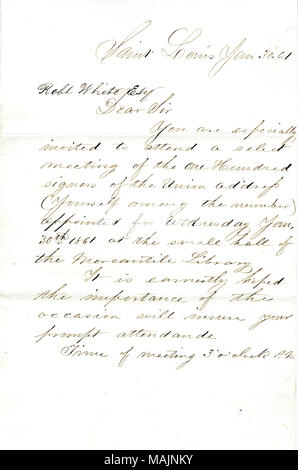 Saint Louis Jan 30.61
Robt White Esq
Dear Sir
You are especially
invited to attend a select
meeting of the One Hundred
signers of the Union address
(Yourself among the number)
appointed for Wednesday Jan.
30th 1861 at the small hall of
the Mercantile Library
It is earnestly hoped
the importance of the
occasion will insure your
prompt attendance
Time of meeting 3 o'clock P.M.
alamy
Image ID: MAJNKY
www.alamy.com